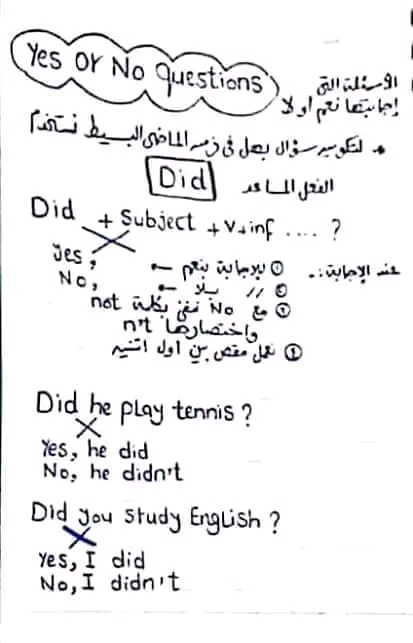 Yes or No questions
الأسئلة التى
إجابتها نعم أو لا
* لتكوين سؤال بهل فى زمن الماضى البسيط نستخدم
الفعل المساعد Did
Did + Subject + V+inf .... ?
عند الإجابة :-
Yes, ① للإجابة بنعم ←
No, ② // بلا ←
③ مع No ننفى بكلمة not
واختصارها n't
④ نعمل مقص بين أول اتنين
Did he play tennis ?
Yes, he did
No, he didn't
Did you study English ?
Yes, I did
No, I didn't